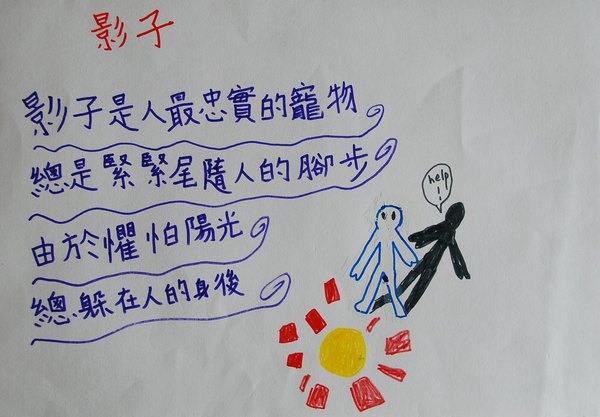 影子
影子是人最忠實的寵物
總是緊緊尾隨人的腳步
由於懼怕陽光
總躲在人的身後
help!